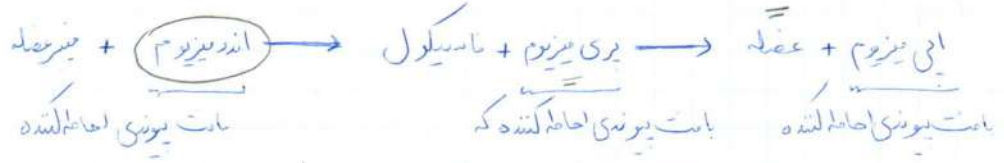 اپی میزیوم + عضله → پری میزیوم + فاسیکول → اندومیزیوم + فیبرعضله
بافت پیوندی احاطه کننده بافت پیوندی احاطه کننده که بافت پیوندی احاطه کننده